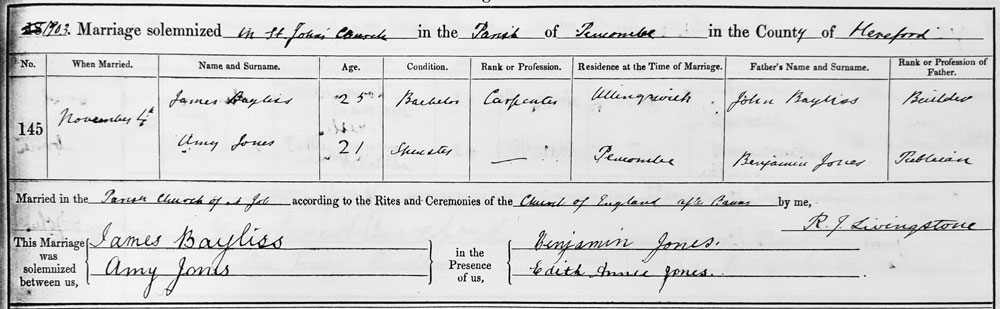 1903. Marriage solemnized in St John's Church in the Parish of Pencombe in the County of Hereford.
No. When Married. Name and Surname. Age. Condition. Rank or Profession. Residence at the Time of Marriage. Father's Name and Surname. Rank or Profession of Father.
James Bayliss 25 Bachelor Carpenter Ullingswick John Bayliss Builder
145 November 4th
Amy Jones 21 Spinster — Pencombe Benjamin Jones Publican
Married in the Parish Church of St Joh according to the Rites and Ceremonies of the Church of England after Banns by me,
R. J. Livingstone
This Marriage was solemnized between us, James Bayliss in the Presence of us, Benjamin Jones.
Amy Jones Edith Annie Jones.